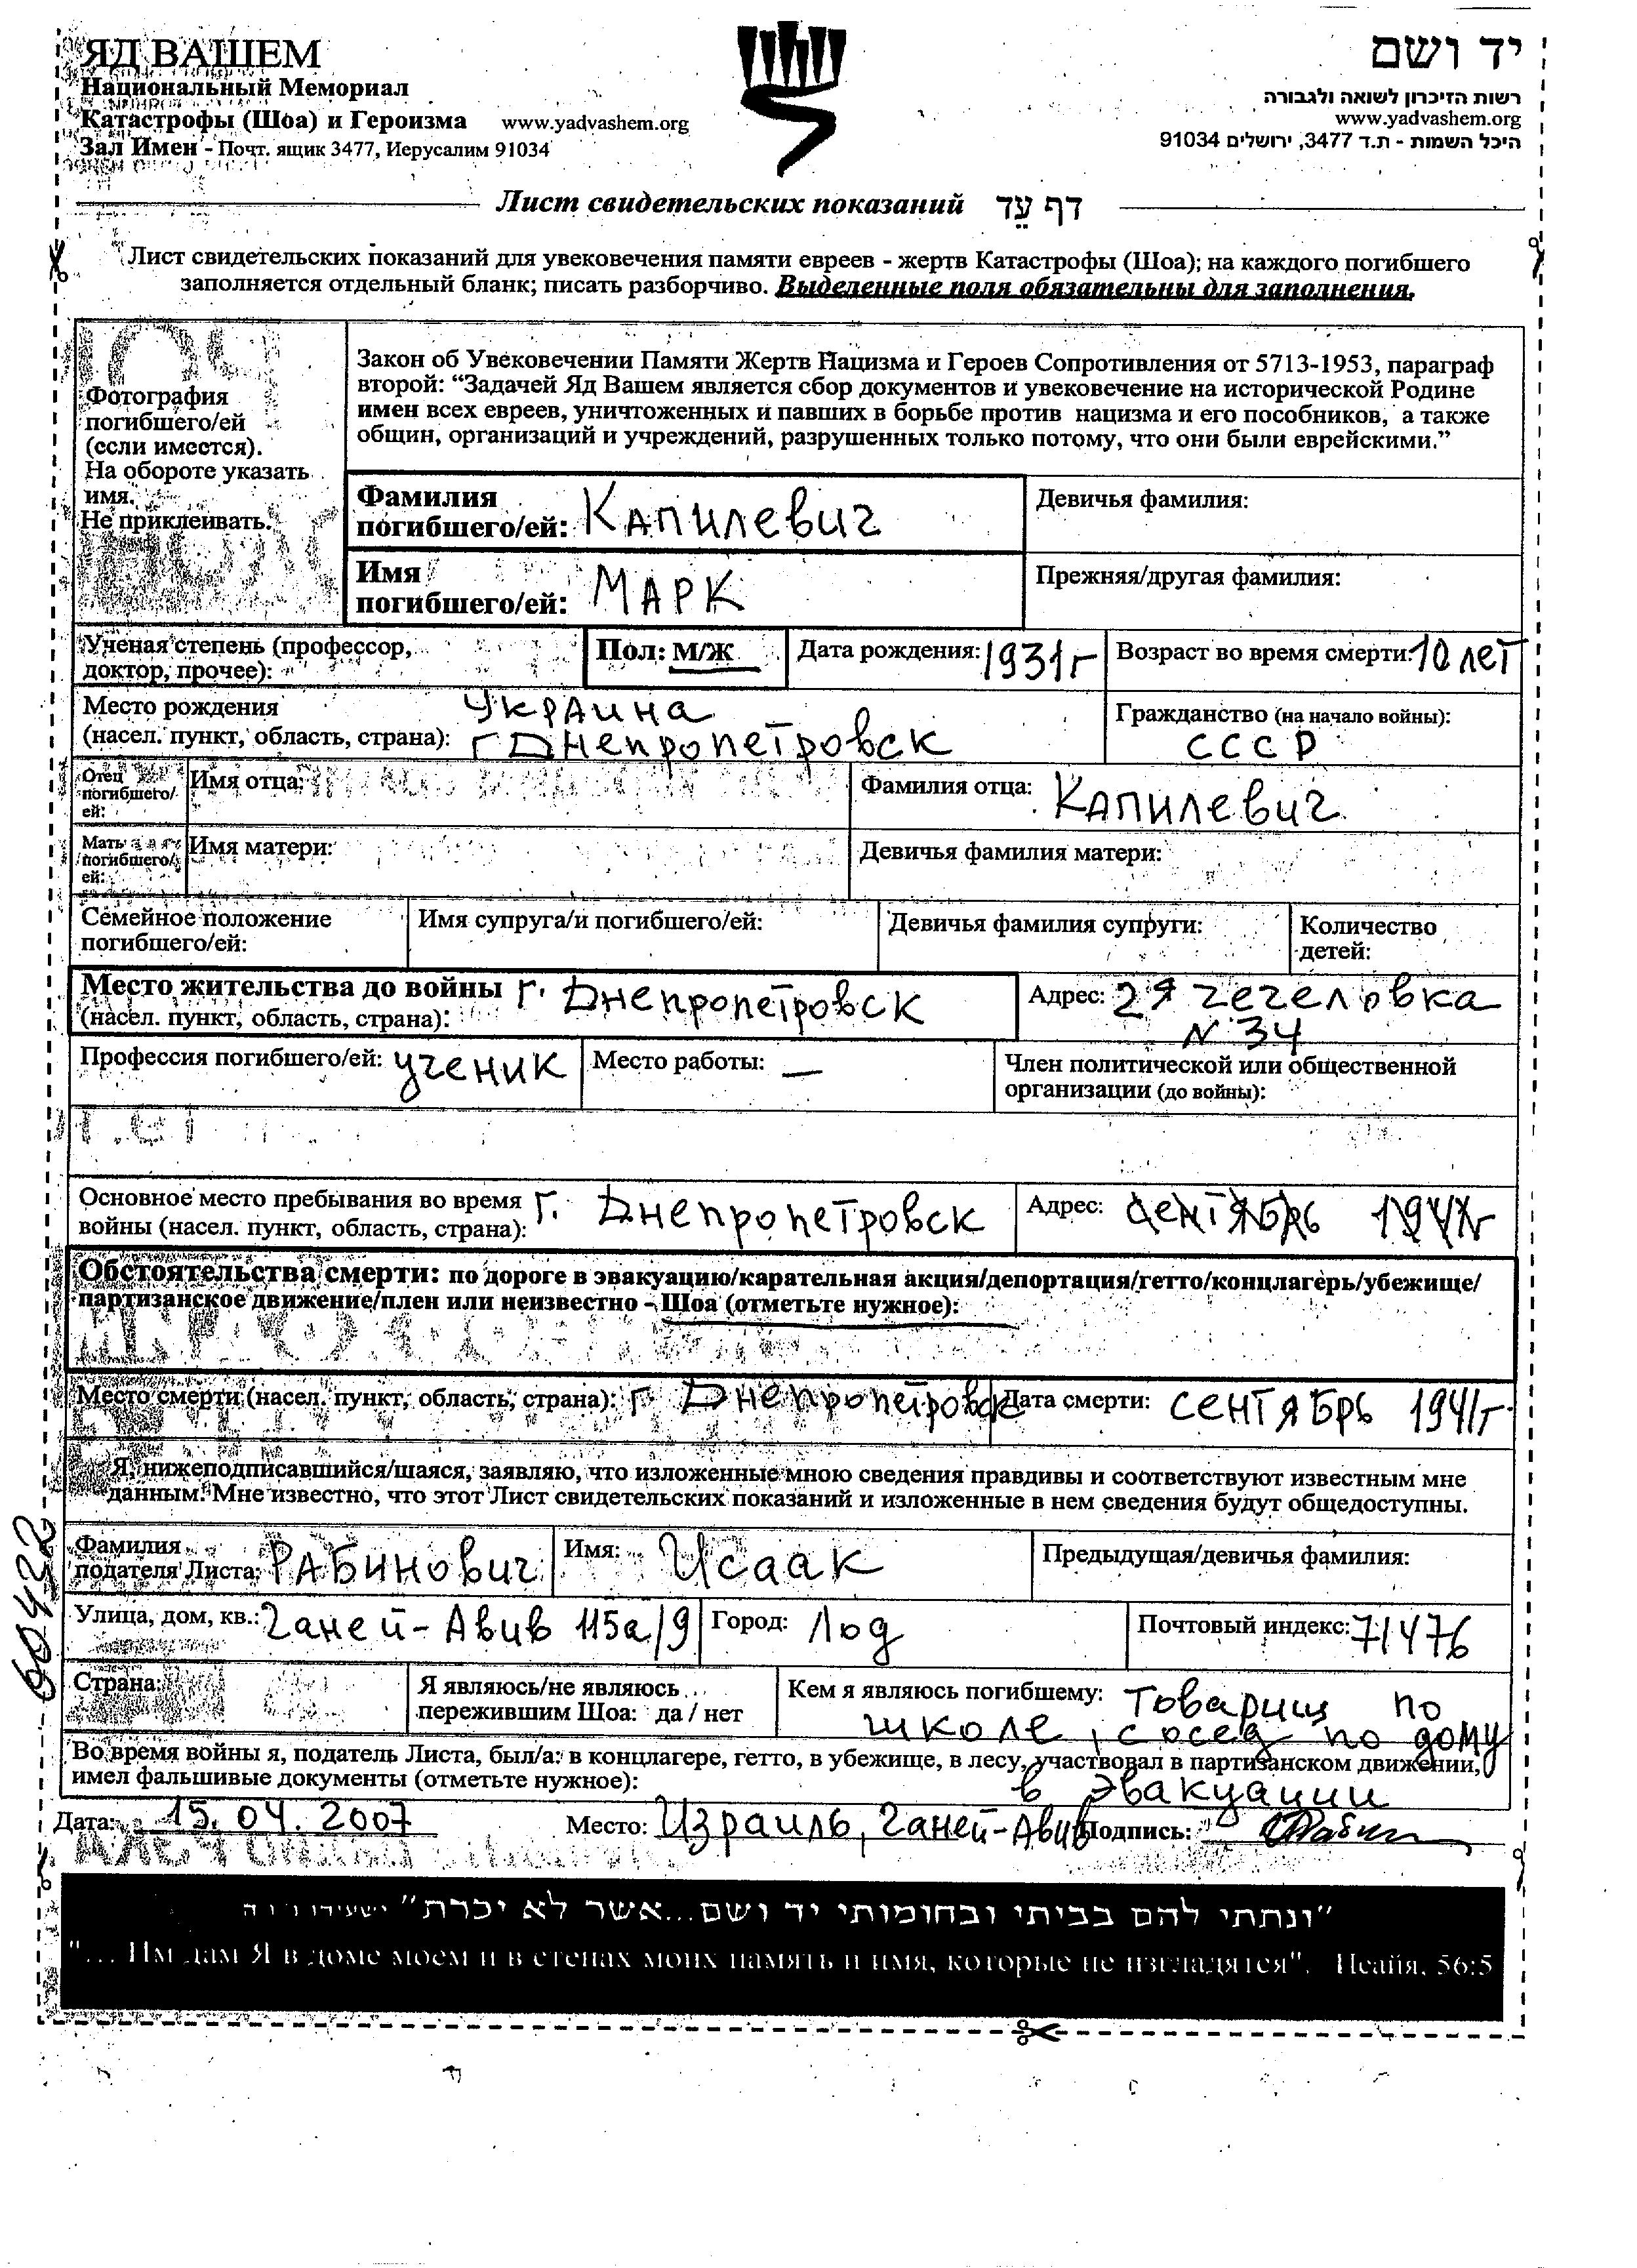 ЯД ВАШЕМ
Национальный Мемориал
Катастрофы (Шоа) и Героизма www.yadvashem.org
Зал Имен - Почт. ящик 3477, Иерусалим 91034
יד ושם
רשות הזיכרון לשואה ולגבורה
www.yadvashem.org
היכל השמות - ת.ד 3477, ירושלים 91034
Лист свидетельских показаний דף עֵד
Лист свидетельских показаний для увековечения памяти евреев - жертв Катастрофы (Шоа); на каждого погибшего
заполняется отдельный бланк; писать разборчиво. Выделенные поля обязательны для заполнения.
Фотография
погибшего/ей
(если имеется).
На обороте указать
имя.
Не приклеивать.
Закон об Увековечении Памяти Жертв Нацизма и Героев Сопротивления от 5713-1953, параграф
второй: “Задачей Яд Вашем является сбор документов и увековечение на исторической Родине
имен всех евреев, уничтоженных и павших в борьбе против нацизма и его пособников, а также
общин, организаций и учреждений, разрушенных только потому, что они были еврейскими.”
Фамилия
погибшего/ей: Капилевич
Девичья фамилия:
Имя
погибшего/ей: МАРК
Прежняя/другая фамилия:
Ученая степень (профессор,
доктор, прочее):
Пол: м/ж
Дата рождения: 1931г
Возраст во время смерти: 10 лет
Место рождения
(насел. пункт, область, страна):
Украина
г Днепропетровск
Гражданство (на начало войны):
СССР
Отец
погибшего/
ей:
Имя отца:
Фамилия отца: Капилевич
Мать
погибшего/
ей:
Имя матери:
Девичья фамилия матери:
Семейное положение
погибшего/ей:
Имя супруга/и погибшего/ей:
Девичья фамилия супруги:
Количество
детей:
Место жительства до войны г. Днепропетровск
(насел. пункт, область, страна):
Адрес: 2я чечеловка
N 34
Профессия погибшего/ей: ученик
Место работы: —
Член политической или общественной
организации (до войны):
Основное место пребывания во время
войны (насел. пункт, область, страна): г. Днепропетровск
Адрес: сентябрь 1941г
Обстоятельства смерти: по дороге в эвакуацию/карательная акция/депортация/гетто/концлагерь/убежище/
партизанское движение/плен или неизвестно - Шоа (отметьте нужное):
Место смерти (насел. пункт, область, страна): г. Днепропетровск
Дата смерти: сентябрь 1941г.
Я, нижеподписавшийся/шаяся, заявляю, что изложенные мною сведения правдивы и соответствуют известным мне
данным. Мне известно, что этот Лист свидетельских показаний и изложенные в нем сведения будут общедоступны.
Фамилия
подателя Листа: Рабинович
Имя: Исаак
Предыдущая/девичья фамилия:
Улица, дом, кв.: Ганей-Авив 115а/9
Город: Лод
Почтовый индекс: 71476
Страна:
Я являюсь/не являюсь
пережившим Шоа: да / нет
Кем я являюсь погибшему: Товарищ по
школе, сосед по дому
Во время войны я, податель Листа, был/а: в концлагере, гетто, в убежище, в лесу, участвовал в партизанском движении,
имел фальшивые документы (отметьте нужное): в эвакуации
Дата: 15.04.2007 Место: Израиль, Ганей-Авив Подпись:
60422
"ונתתי להם בביתי ובחומותי יד ושם...אשר לא יכרת" ישעיהו נו ה
"... Им дам Я в доме моем и в стенах моих память и имя, которые не изгладятся". Исайя, 56:5